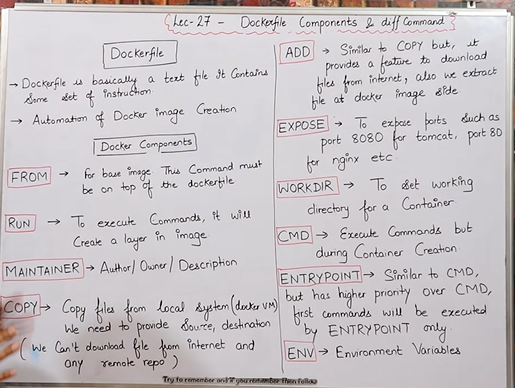 Lec-27 - Dockerfile Components & diff Command
Dockerfile
→ Dockerfile is basically a text file it contains
some set of instruction
→ Automation of Docker image Creation
Docker Components
FROM → for base image This Command must
be on top of the dockerfile
RUN → To execute Commands, it will
Create a layer in image
MAINTAINER → Author/Owner/Description
COPY → Copy files from local system (docker VM)
We need to provide Source, destination
(We Can't download file from internet and
any remote repo)
ADD → Similar to COPY but, it
provides a feature to download
files from internet, also we extract
file at docker image side
EXPOSE → To expose ports such as
port 8080 for tomcat, port 80
for nginx etc.
WORKDIR → To set working
directory for a Container
CMD → Execute Commands but
during Container Creation
ENTRYPOINT → Similar to CMD,
but has higher priority over CMD,
first commands will be executed
by ENTRYPOINT only
ENV → Environment Variables
Try to remember and if you remember then follow